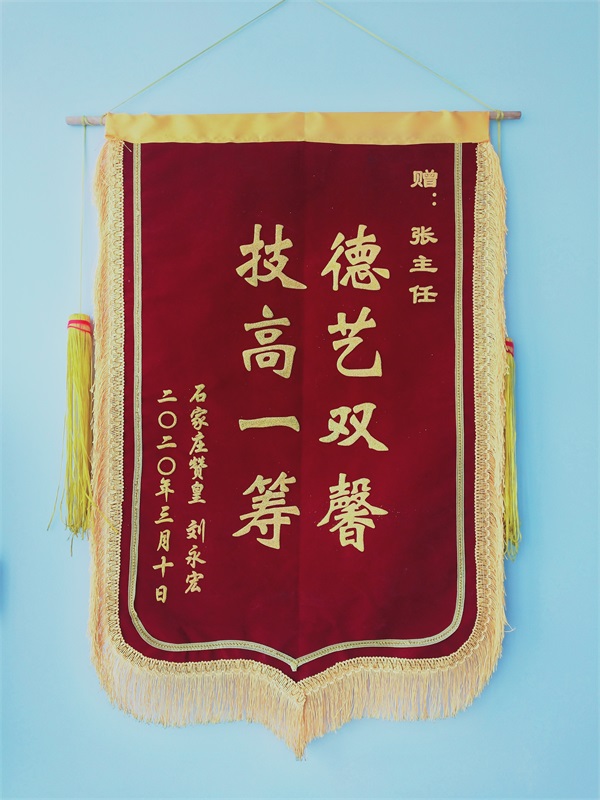 赠：张主任
德艺双馨
技高一筹
石家庄赞皇 刘永宏
二〇二〇年三月十日